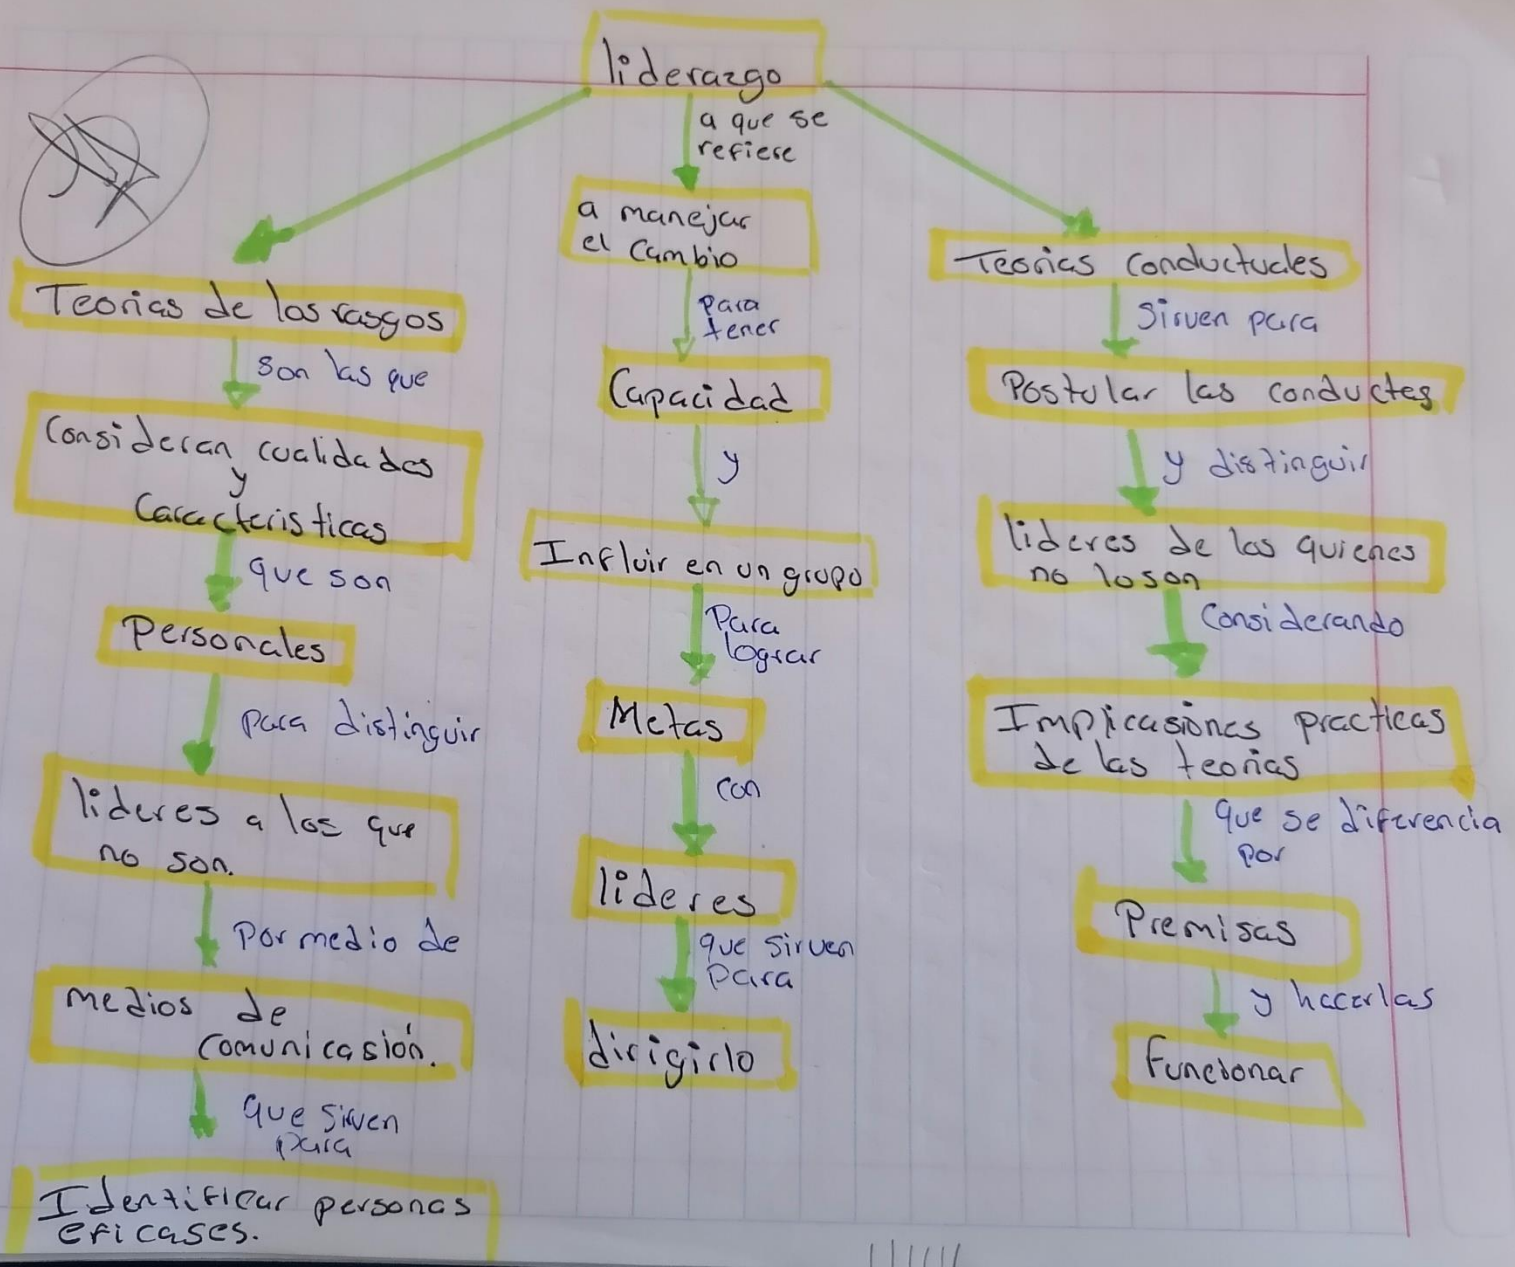 liderazgo
a que se
refiere
a manejar
el cambio
para
tener
Capacidad
y
Influir en un grupo
Para
lograr
Metas
con
lideres
que sirven
para
dirigirlo
Teorias de los rasgos
son las que
Consideran cualidades
y
Caracteristicas
que son
Personales
para distinguir
lideres a los que
no son.
Por medio de
medios de
comunicasión.
que sirven
para
Identificar personas
eficases.
Teorias conductuales
Sirven para
Postular las conductas
y distinguir
lideres de los quienes
no loson
Considerando
Implicasiones practicas
de las teorias
que se diferencia
por
Premisas
y hacerlas
Funcionar